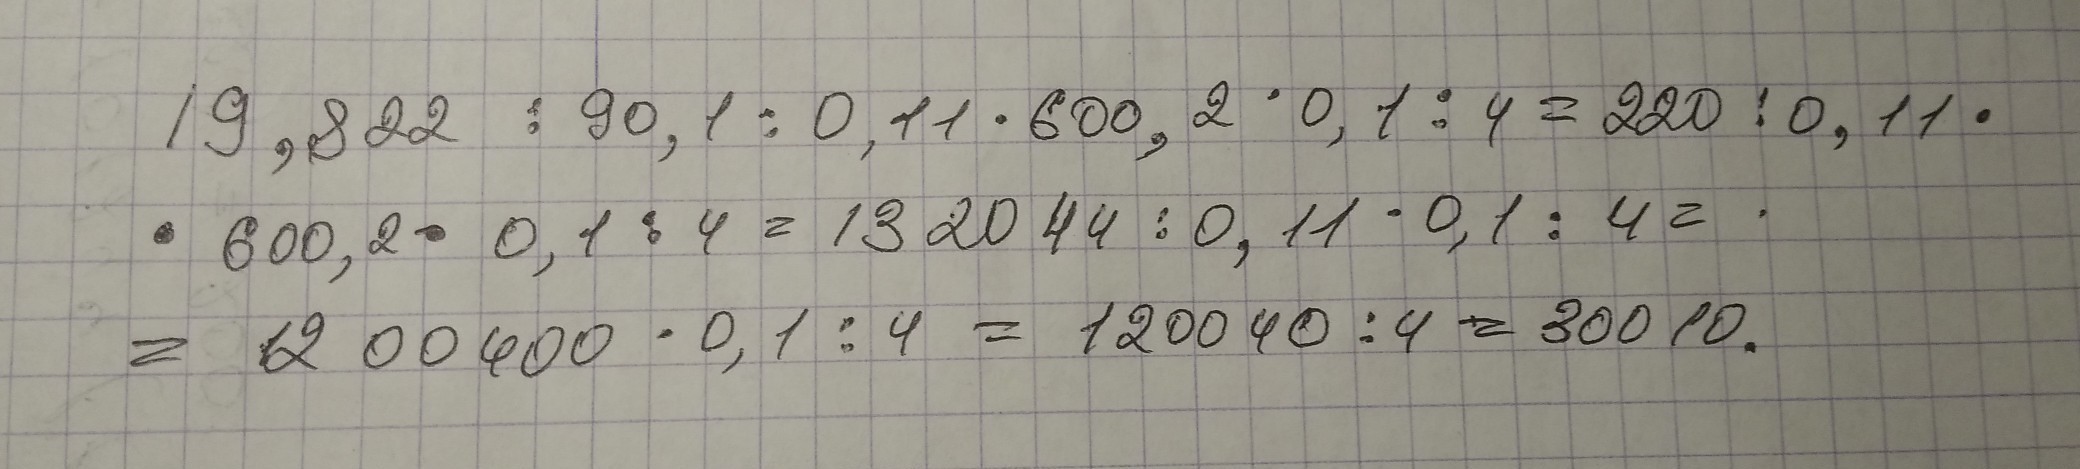 19,822 : 90,1 : 0,11 · 600,2 · 0,1 : 4 = 220 : 0,11 ·
· 600,2 · 0,1 : 4 = 132044 : 0,11 · 0,1 : 4 =
= 1200400 · 0,1 : 4 = 120040 : 4 = 30010.